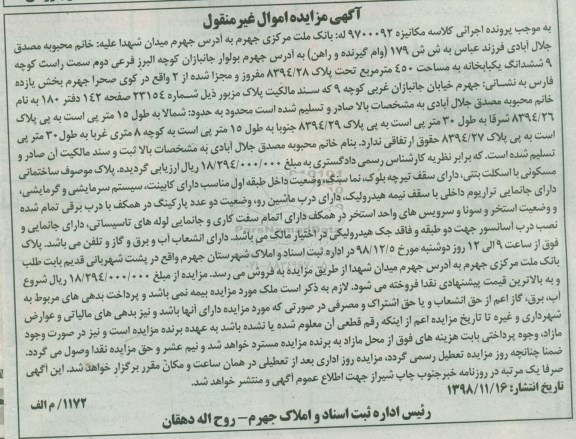 آگهی مزایده اموال غیر منقول
به موجب پرونده اجرائی کلاسه مکانیزه ۹۷۰۰۰۹۲ له: بانک ملت مرکزی جهرم به آدرس جهرم میدان شهدا علیه: خانم محبوبه مصدق
جلال آبادی فرزند عباس به ش ش ۱۷۹ (وام گیرنده و راهن) به آدرس جهرم بولوار جانبازان کوچه البرز فرعی دوم سمت راست کوچه
۹ ششدانگ یکبابخانه به مساحت ۴۵۰ مترمربع تحت پلاک ۸۳۹۴/۲۸ مفروز و مجزا شده از ۲ واقع در کوی صحرا جهرم بخش یازده
فارس به نشانی: جهرم خیابان جانبازان غربی کوچه ۹ که سند مالکیت پلاک مزبور ذیل شماره ۲۳۱۵۴ صفحه ۱۴۲ دفتر ۱۸۰ به نام
خانم محبوبه مصدق جلال آبادی به مشخصات بالا صادر و تسلیم شده است محدود به حدود: شمالا به طول ۱۵ متر پی است به پی پلاک
۸۳۹۴/۲۶ شرقا به طول ۳۰ متر پی است به پی پلاک ۸۳۹۴/۲۹ جنوبا به طول ۱۵ متر پی است به کوچه ۸ متری غربا به طول ۳۰ متر پی
است به پی پلاک ۸۳۹۴/۲۷ حقوق ارتفاقی ندارد. بنام خانم محبوبه مصدق جلال آبادی به مشخصات بالا ثبت و سند مالکیت آن صادر و
تسلیم شده است. که برابر نظریه کارشناس رسمی دادگستری به مبلغ ۱۸/۲۹۴/۰۰۰/۰۰۰ ریال ارزیابی گردیده. پلاک موصوف ساختمانی
مسکونی با اسکلت بتنی، دارای سقف تیرچه بلوک، نما سیمان، وضعیت داخل طبقه اول مناسب دارای کابینت، سیستم سرمایشی و گرمایشی،
دارای جانمایی تراریوم داخلی با سقف نیمه هیدرولیک، دارای درب ماشین رو، وضعیت دو عدد پارکینگ در همکف با درب برقی تمام شده
و وضعیت استخر و سونا و سرویس های واحد استخر در همکف دارای اتمام سفت کاری و جانمایی لوله های تاسیساتی، دارای جانمایی و
نصب درب آسانسور جهت دو طبقه و فاقد جک هیدرولیکی در اختیار مالک می باشد. دارای انشعاب آب و برق و گاز و تلفن می باشد. پلاک
فوق از ساعت ۹ الی ۱۲ روز دوشنبه مورخ ۹۸/۱۲/۵ در اداره ثبت اسناد و املاک شهرستان جهرم واقع در پشت شهربانی قدیم بابت طلب
بانک ملت مرکزی جهرم به آدرس جهرم میدان شهدا از طریق مزایده به فروش می رسد. مزایده از مبلغ ۱۸/۲۹۴/۰۰۰/۰۰۰ ریال شروع
و به بالاترین قیمت پیشنهادی نقدا فروخته می شود. لازم به ذکر است ملک مورد مزایده بیمه نمی باشد و پرداخت بدهی های مربوط به
آب، برق، گاز اعم از حق انشعاب و یا حق اشتراک و مصرفی در صورتی که مورد مزایده دارای آنها باشد و نیز بدهی های مالیاتی و عوارض
شهرداری و غیره تا تاریخ مزایده اعم از اینکه رقم قطعی آن معلوم شده یا نشده باشد به عهده برنده مزایده است و نیز در صورت وجود
مازاد، وجوه پرداختی بابت هزینه های فوق از محل مازاد به برنده مزایده مسترد خواهد شد و نیم عشر و حق مزایده نقدا وصول می گردد.
ضمنا چنانچه روز مزایده تعطیل رسمی گردد، مزایده روز اداری بعد از تعطیلی در همان ساعت و مکان مقرر برگزار خواهد شد، این آگهی
صرفا یک مرتبه در روزنامه خبرجنوب چاپ شیراز جهت اطلاع عموم آگهی و منتشر خواهد شد.
تاریخ انتشار: ۱۳۹۸/۱۱/۱۶
۱۱۷۲/ م الف
رئیس اداره ثبت اسناد و املاک جهرم – روح اله دهقان